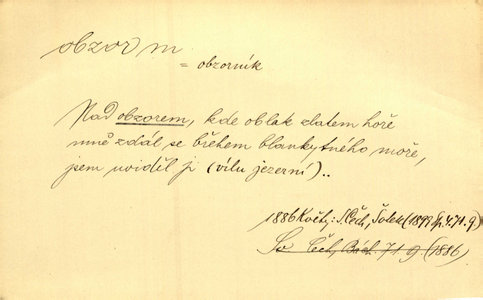 obzor m
= obzorník
Nad obzorem, kde oblak zlatem hoře
mně zdál se břehem blankytného moře,
jsem uviděl ji (vílu jezerní)..
1886 Květy: S. Čech, Šotek (1899 Sp. 4. 71. 9)
Sv Čech, Bách. 71 9. (1886)